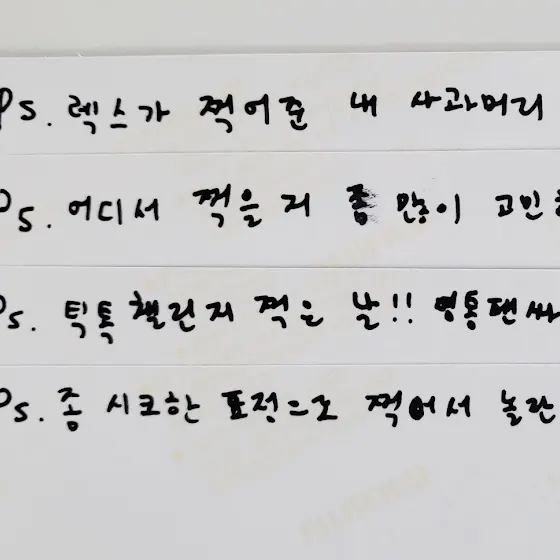 Ps. 렉스가 찍어준 내 사과머리
Ps. 어디서 찍을지 좀 많이 고민
Ps. 틱톡 챌린지 찍은 날!! 영통팬싸
Ps. 좀 시크한 표정으로 찍어서 놀란